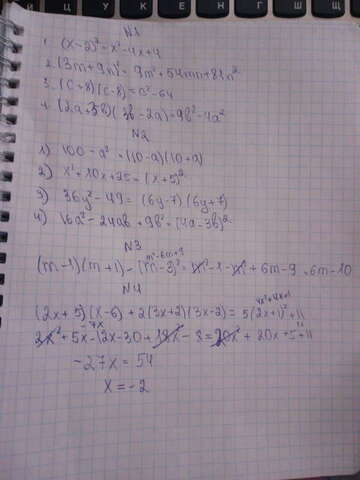 N1
1. (x-2)² = x²-4x+4
2. (3m+9n)² = 9m²+54mn+81n²
3. (c+8)(c-8) = c²-64
4. (2a+3b)(3b-2a) = 9b²-4a²
N2
1) 100-a² = (10-a)(10+a)
2) x²+10x+25 = (x+5)²
3) 36y²-49 = (6y-7)(6y+7)
4) 16a²-24ab+9b² = (4a-3b)²
N3
m²-6m+9
(m-1)(m+1)-(m-3)² = m²-1-m²+6m-9 = 6m-10
N4
4x²+4x+1
(2x+5)(x-6)+2(3x+2)(3x-2) = 5(2x+1)²+11
-7x
2x²+5x-12x-30+18x²-8 = 20x²+20x+5+11
-27x = 54
x = -2